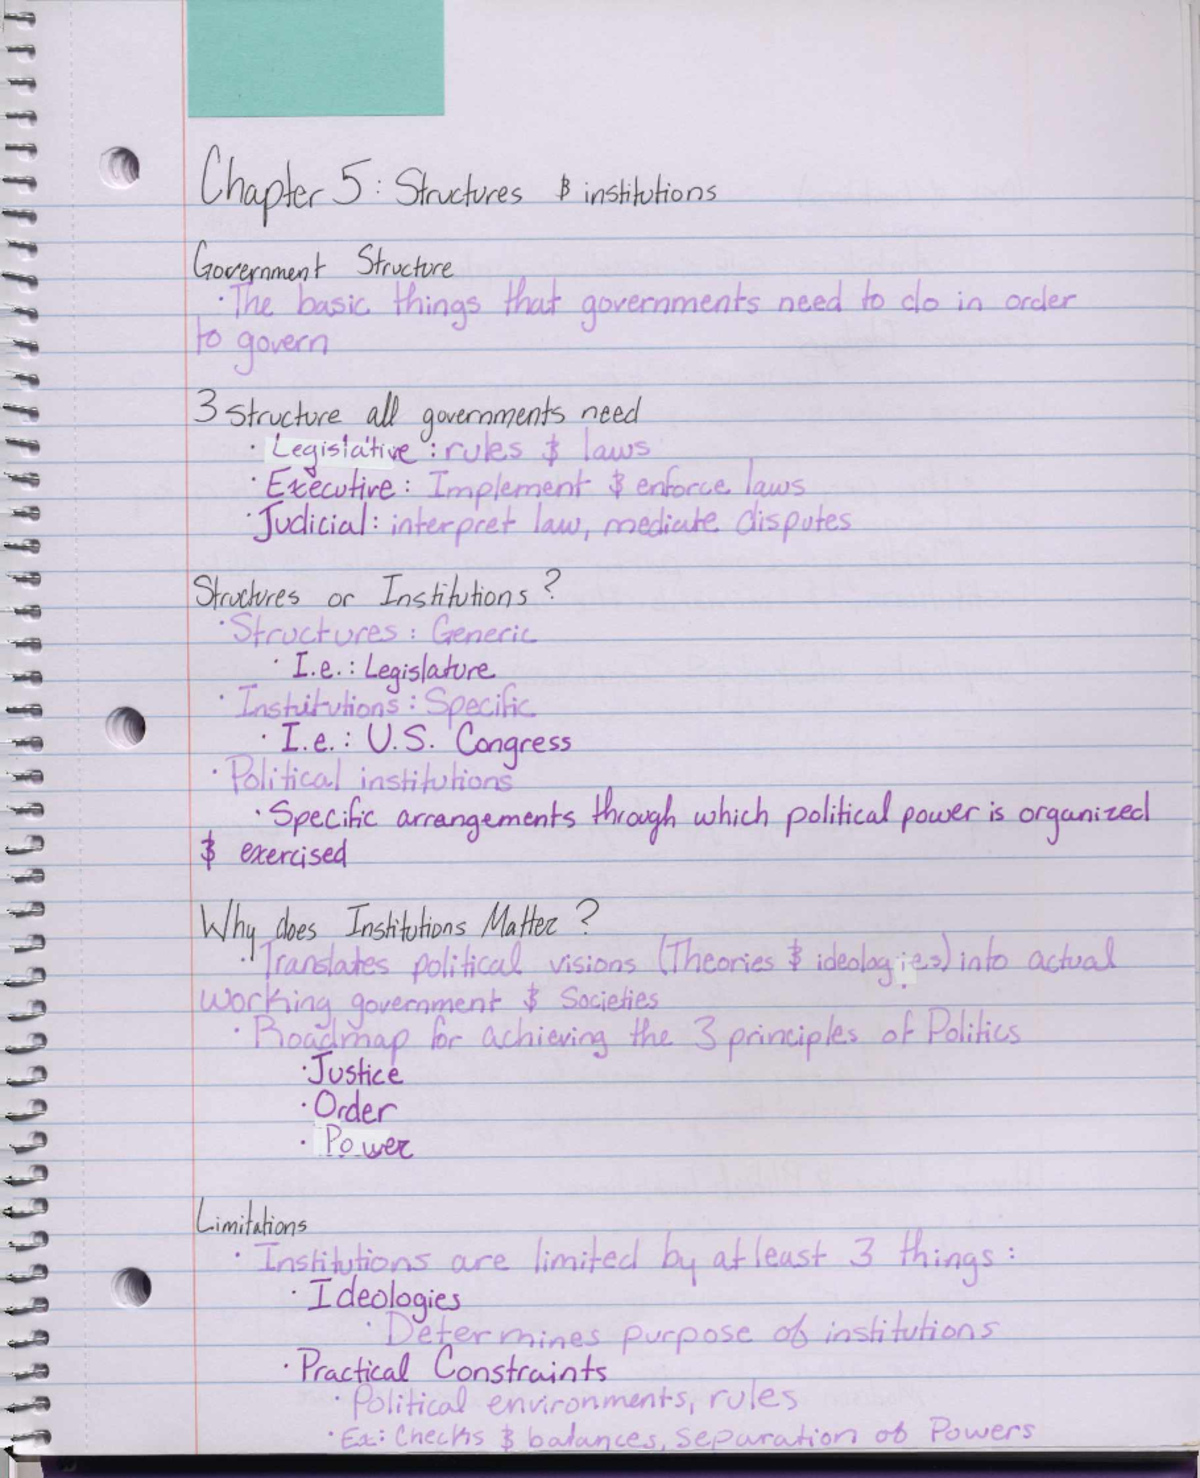 Chapter 5: Structures & institutions
Government Structure
· The basic things that governments need to do in order
to govern
3 structure all governments need
· Legislative: rules & laws
· Executive: Implement & enforce laws
· Judicial: interpret law, mediate disputes
Structures or Institutions?
· Structures: Generic
· I.e.: Legislature
· Instuitutions: Specific
· I.e.: U.S. Congress
· Political institutions
· Specific arrangements through which political power is organized
& exercised
Why does Institutions Matter?
· Translates political visions (Theories & ideologies) into actual
working government & Societies
· Roadmap for achieving the 3 principles of Politics
· Justice
· Order
· Power
Limitations
· Institutions are limited by at least 3 things:
· Ideologies
· Determines purpose of institutions
· Practical Constraints
· Political environments, rules
· Ex: Checks & balances, Separation of Powers